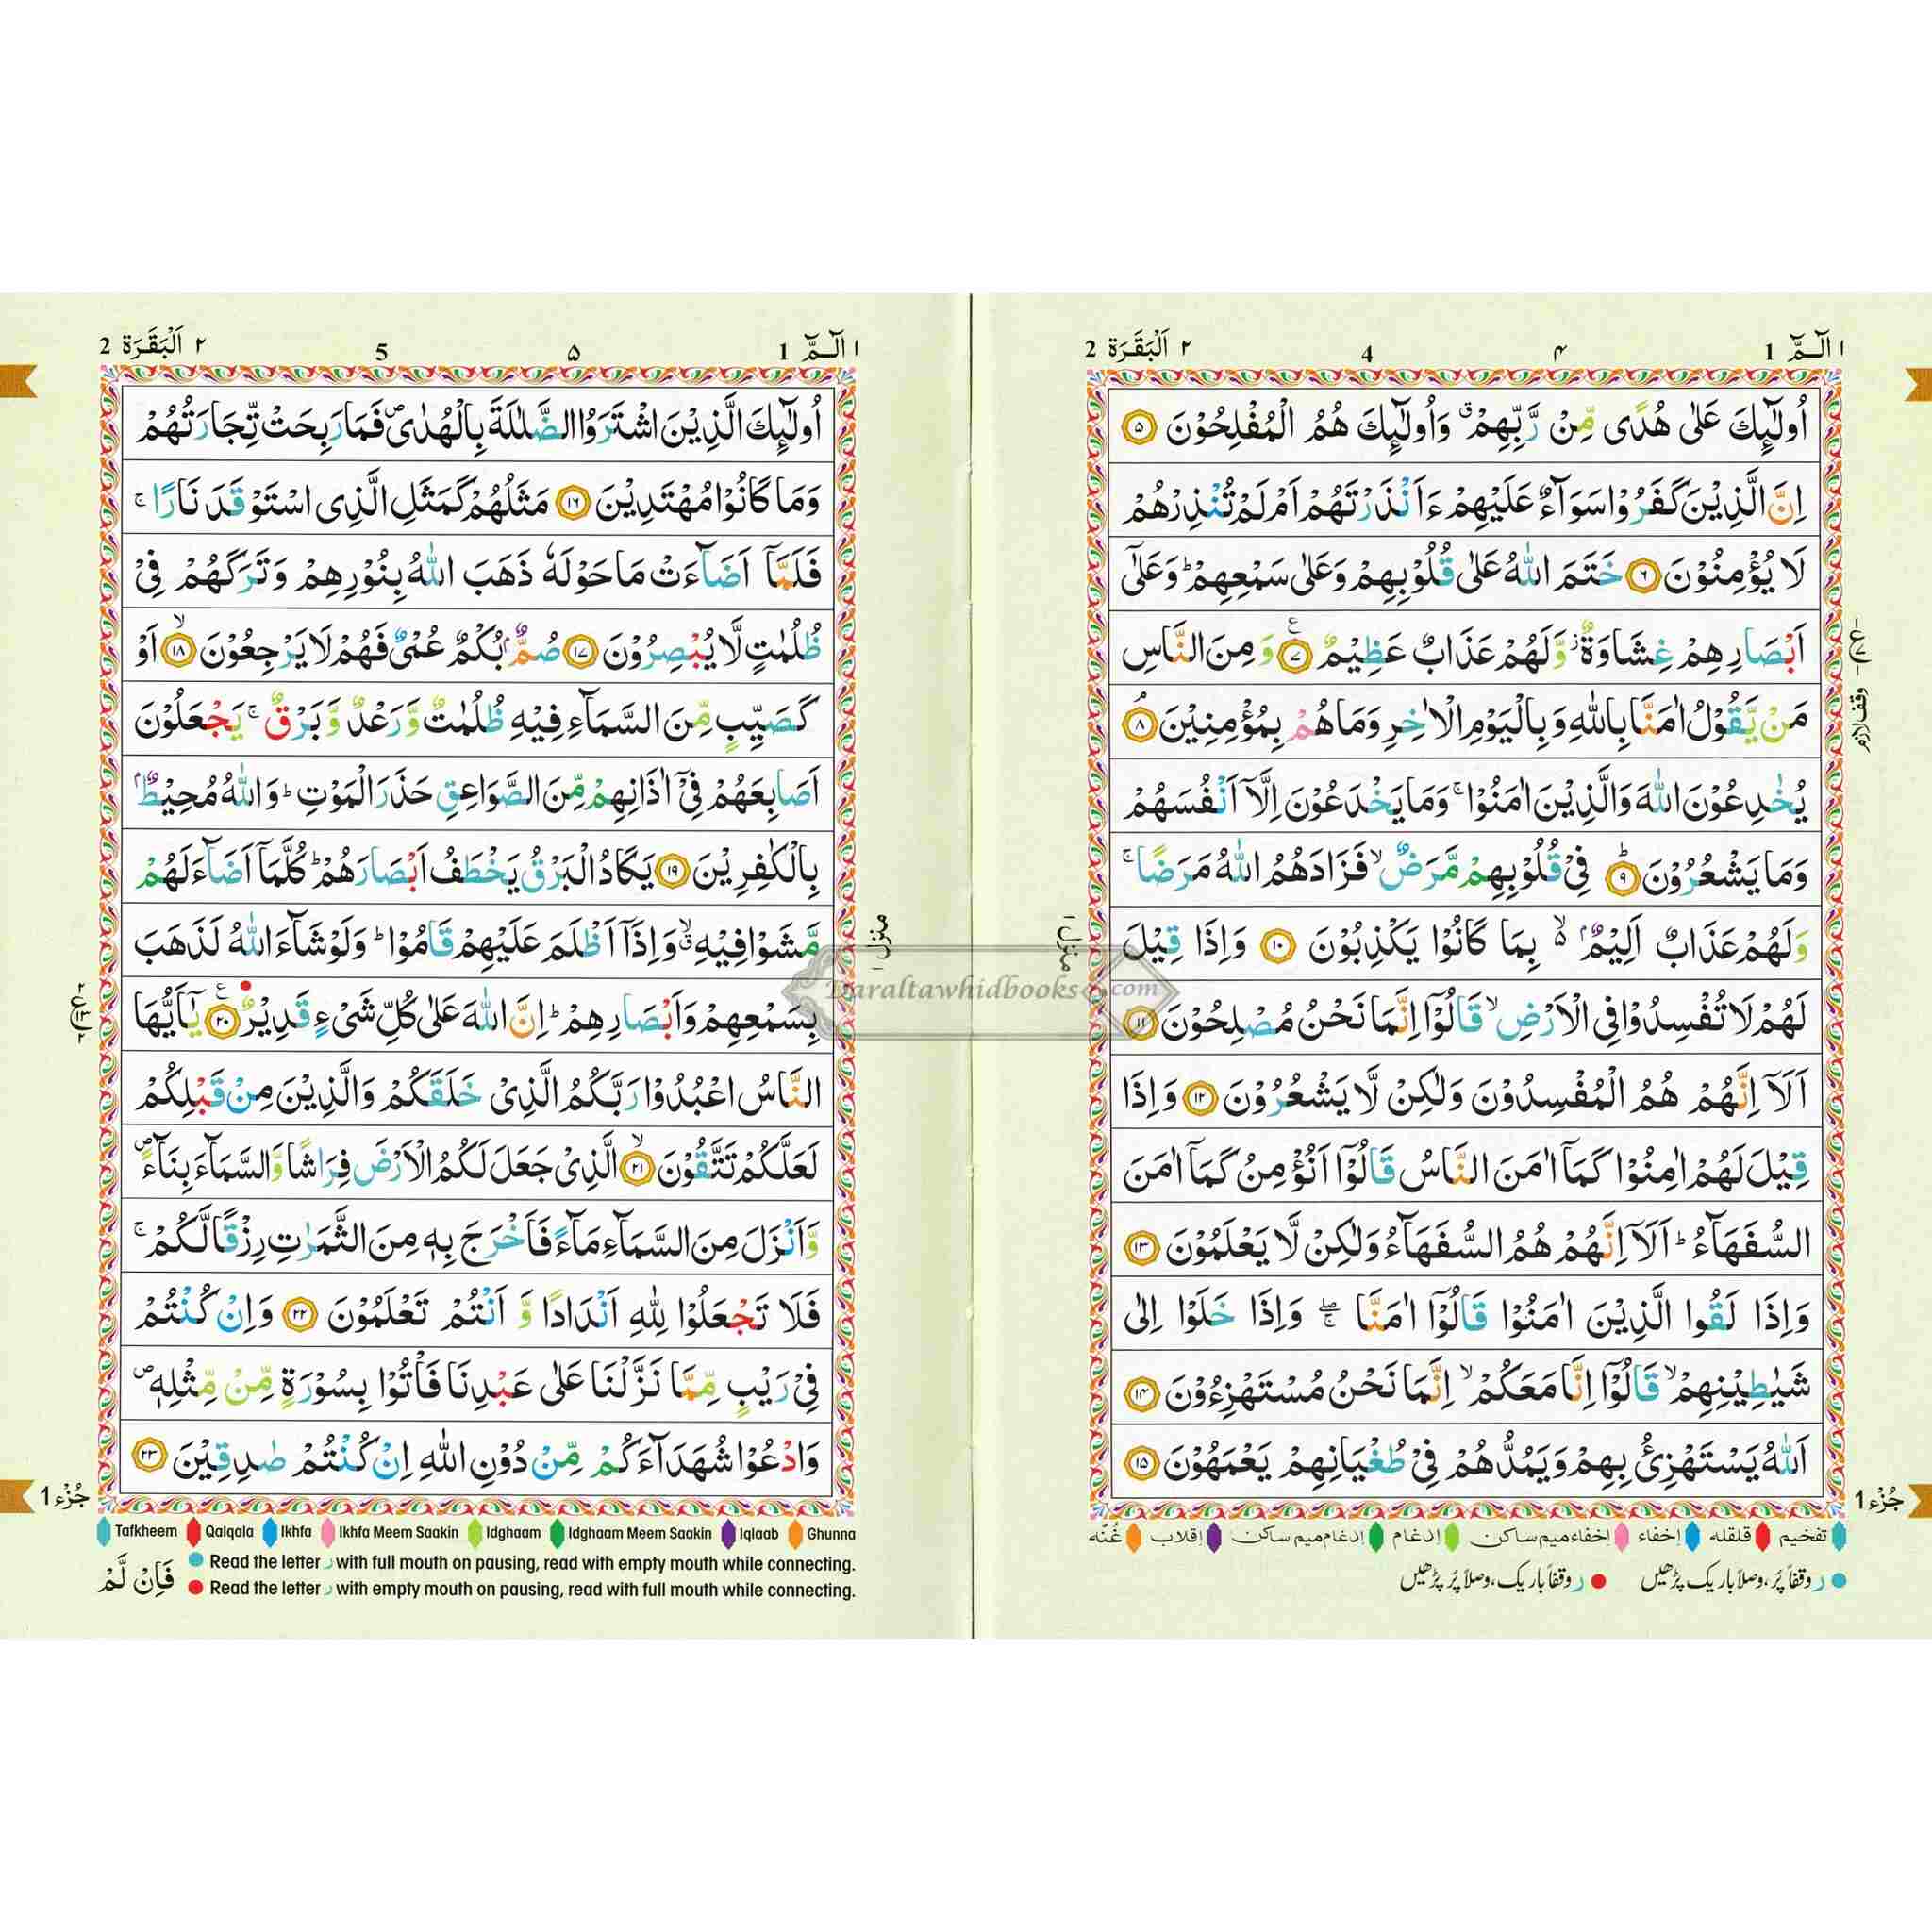 ١ الٓمّٓ 1 ٤ 4 ٢ اَلْبَقَرَة 2
اُولٰٓئِكَ عَلٰى هُدًى مِّنْ رَّبِّهِمْ ۗ وَاُولٰٓئِكَ هُمُ الْمُفْلِحُوْنَ ۝٥
اِنَّ الَّذِيْنَ كَفَرُوْا سَوَآءٌ عَلَيْهِمْ ءَاَنْذَرْتَهُمْ اَمْ لَمْ تُنْذِرْهُمْ
لَا يُؤْمِنُوْنَ ۝٦ خَتَمَ اللّٰهُ عَلٰى قُلُوْبِهِمْ وَعَلٰى سَمْعِهِمْ ؕ وَعَلٰٓى
اَبْصَارِهِمْ غِشَاوَةٌ ؗ وَّلَهُمْ عَذَابٌ عَظِيْمٌ ۝٧ وَمِنَ النَّاسِ
مَنْ يَّقُوْلُ اٰمَنَّا بِاللّٰهِ وَبِالْيَوْمِ الْاٰخِرِ وَمَا هُمْ بِمُؤْمِنِيْنَ ۝٨
يُخٰدِعُوْنَ اللّٰهَ وَالَّذِيْنَ اٰمَنُوْا ۚ وَمَا يَخْدَعُوْنَ اِلَّآ اَنْفُسَهُمْ
وَمَا يَشْعُرُوْنَ ۝٩ فِيْ قُلُوْبِهِمْ مَّرَضٌ ۙ فَزَادَهُمُ اللّٰهُ مَرَضًا ۚ
وَلَهُمْ عَذَابٌ اَلِيْمٌۢ ۙ۬ بِمَا كَانُوْا يَكْذِبُوْنَ ۝١٠ وَاِذَا قِيْلَ
لَهُمْ لَا تُفْسِدُوْا فِي الْاَرْضِ ۙ قَالُوْٓا اِنَّمَا نَحْنُ مُصْلِحُوْنَ ۝١١
اَلَآ اِنَّهُمْ هُمُ الْمُفْسِدُوْنَ وَلٰكِنْ لَّا يَشْعُرُوْنَ ۝١٢ وَاِذَا
قِيْلَ لَهُمْ اٰمِنُوْا كَمَآ اٰمَنَ النَّاسُ قَالُوْٓا اَنُؤْمِنُ كَمَآ اٰمَنَ
السُّفَهَآءُ ؕ اَلَآ اِنَّهُمْ هُمُ السُّفَهَآءُ وَلٰكِنْ لَّا يَعْلَمُوْنَ ۝١٣
وَاِذَا لَقُوا الَّذِيْنَ اٰمَنُوْا قَالُوْٓا اٰمَنَّا ۖۚ وَاِذَا خَلَوْا اِلٰى
شَيٰطِيْنِهِمْ ۙ قَالُوْٓا اِنَّا مَعَكُمْ ۙ اِنَّمَا نَحْنُ مُسْتَهْزِءُوْنَ ۝١٤
اَللّٰهُ يَسْتَهْزِئُ بِهِمْ وَيَمُدُّهُمْ فِيْ طُغْيَانِهِمْ يَعْمَهُوْنَ ۝١٥
وقف لازم
منزل ١
جُزْء 1
تفخيم قلقله إخفاء إخفاء ميم ساكن إدغام إدغام ميم ساكن إقلاب غُنّه
ر وقفاً پُر، وصلاً باریک پڑھیں ر وقفاً باریک، وصلاً پُر پڑھیں
١ الٓمّٓ 1 ٥ 5 ٢ اَلْبَقَرَة 2
اُولٰٓئِكَ الَّذِيْنَ اشْتَرَوُا الضَّلٰلَةَ بِالْهُدٰى ۪ فَمَا رَبِحَتْ تِّجَارَتُهُمْ
وَمَا كَانُوْا مُهْتَدِيْنَ ۝١٦ مَثَلُهُمْ كَمَثَلِ الَّذِى اسْتَوْقَدَ نَارًا ۚ
فَلَمَّآ اَضَآءَتْ مَا حَوْلَهٗ ذَهَبَ اللّٰهُ بِنُوْرِهِمْ وَتَرَكَهُمْ فِيْ
ظُلُمٰتٍ لَّا يُبْصِرُوْنَ ۝١٧ صُمٌّۢ بُكْمٌ عُمْيٌ فَهُمْ لَا يَرْجِعُوْنَ ۝١٨ اَوْ
كَصَيِّبٍ مِّنَ السَّمَآءِ فِيْهِ ظُلُمٰتٌ وَّرَعْدٌ وَّبَرْقٌ ۚ يَجْعَلُوْنَ
اَصَابِعَهُمْ فِيْٓ اٰذَانِهِمْ مِّنَ الصَّوَاعِقِ حَذَرَ الْمَوْتِ ؕ وَاللّٰهُ مُحِيْطٌۢ
بِالْكٰفِرِيْنَ ۝١٩ يَكَادُ الْبَرْقُ يَخْطَفُ اَبْصَارَهُمْ ؕ كُلَّمَآ اَضَآءَ لَهُمْ
مَّشَوْا فِيْهِ ۙۗ وَاِذَآ اَظْلَمَ عَلَيْهِمْ قَامُوْا ؕ وَلَوْ شَآءَ اللّٰهُ لَذَهَبَ
بِسَمْعِهِمْ وَاَبْصَارِهِمْ ؕ اِنَّ اللّٰهَ عَلٰى كُلِّ شَيْءٍ قَدِيْرٌ ۝٢٠ يٰٓاَيُّهَا
النَّاسُ اعْبُدُوْا رَبَّكُمُ الَّذِيْ خَلَقَكُمْ وَالَّذِيْنَ مِنْ قَبْلِكُمْ
لَعَلَّكُمْ تَتَّقُوْنَ ۝٢١ الَّذِيْ جَعَلَ لَكُمُ الْاَرْضَ فِرَاشًا وَّالسَّمَآءَ بِنَآءً ۪
وَّاَنْزَلَ مِنَ السَّمَآءِ مَآءً فَاَخْرَجَ بِهٖ مِنَ الثَّمَرٰتِ رِزْقًا لَّكُمْ ۚ
فَلَا تَجْعَلُوْا لِلّٰهِ اَنْدَادًا وَّ اَنْتُمْ تَعْلَمُوْنَ ۝٢٢ وَاِنْ كُنْتُمْ
فِيْ رَيْبٍ مِّمَّا نَزَّلْنَا عَلٰى عَبْدِنَا فَاْتُوْا بِسُوْرَةٍ مِّنْ مِّثْلِهٖ ۪
وَادْعُوْا شُهَدَآءَكُمْ مِّنْ دُوْنِ اللّٰهِ اِنْ كُنْتُمْ صٰدِقِيْنَ ۝٢٣
منزل ١
جُزْء 1
Tafkheem Qalqala Ikhfa Ikhfa Meem Saakin Idghaam Idghaam Meem Saakin Iqlaab Ghunna
Read the letter ر with full mouth on pausing, read with empty mouth while connecting.
Read the letter ر with empty mouth on pausing, read with full mouth while connecting.
فَاِنْ لَّمْ
Daraltawhidbooks.com